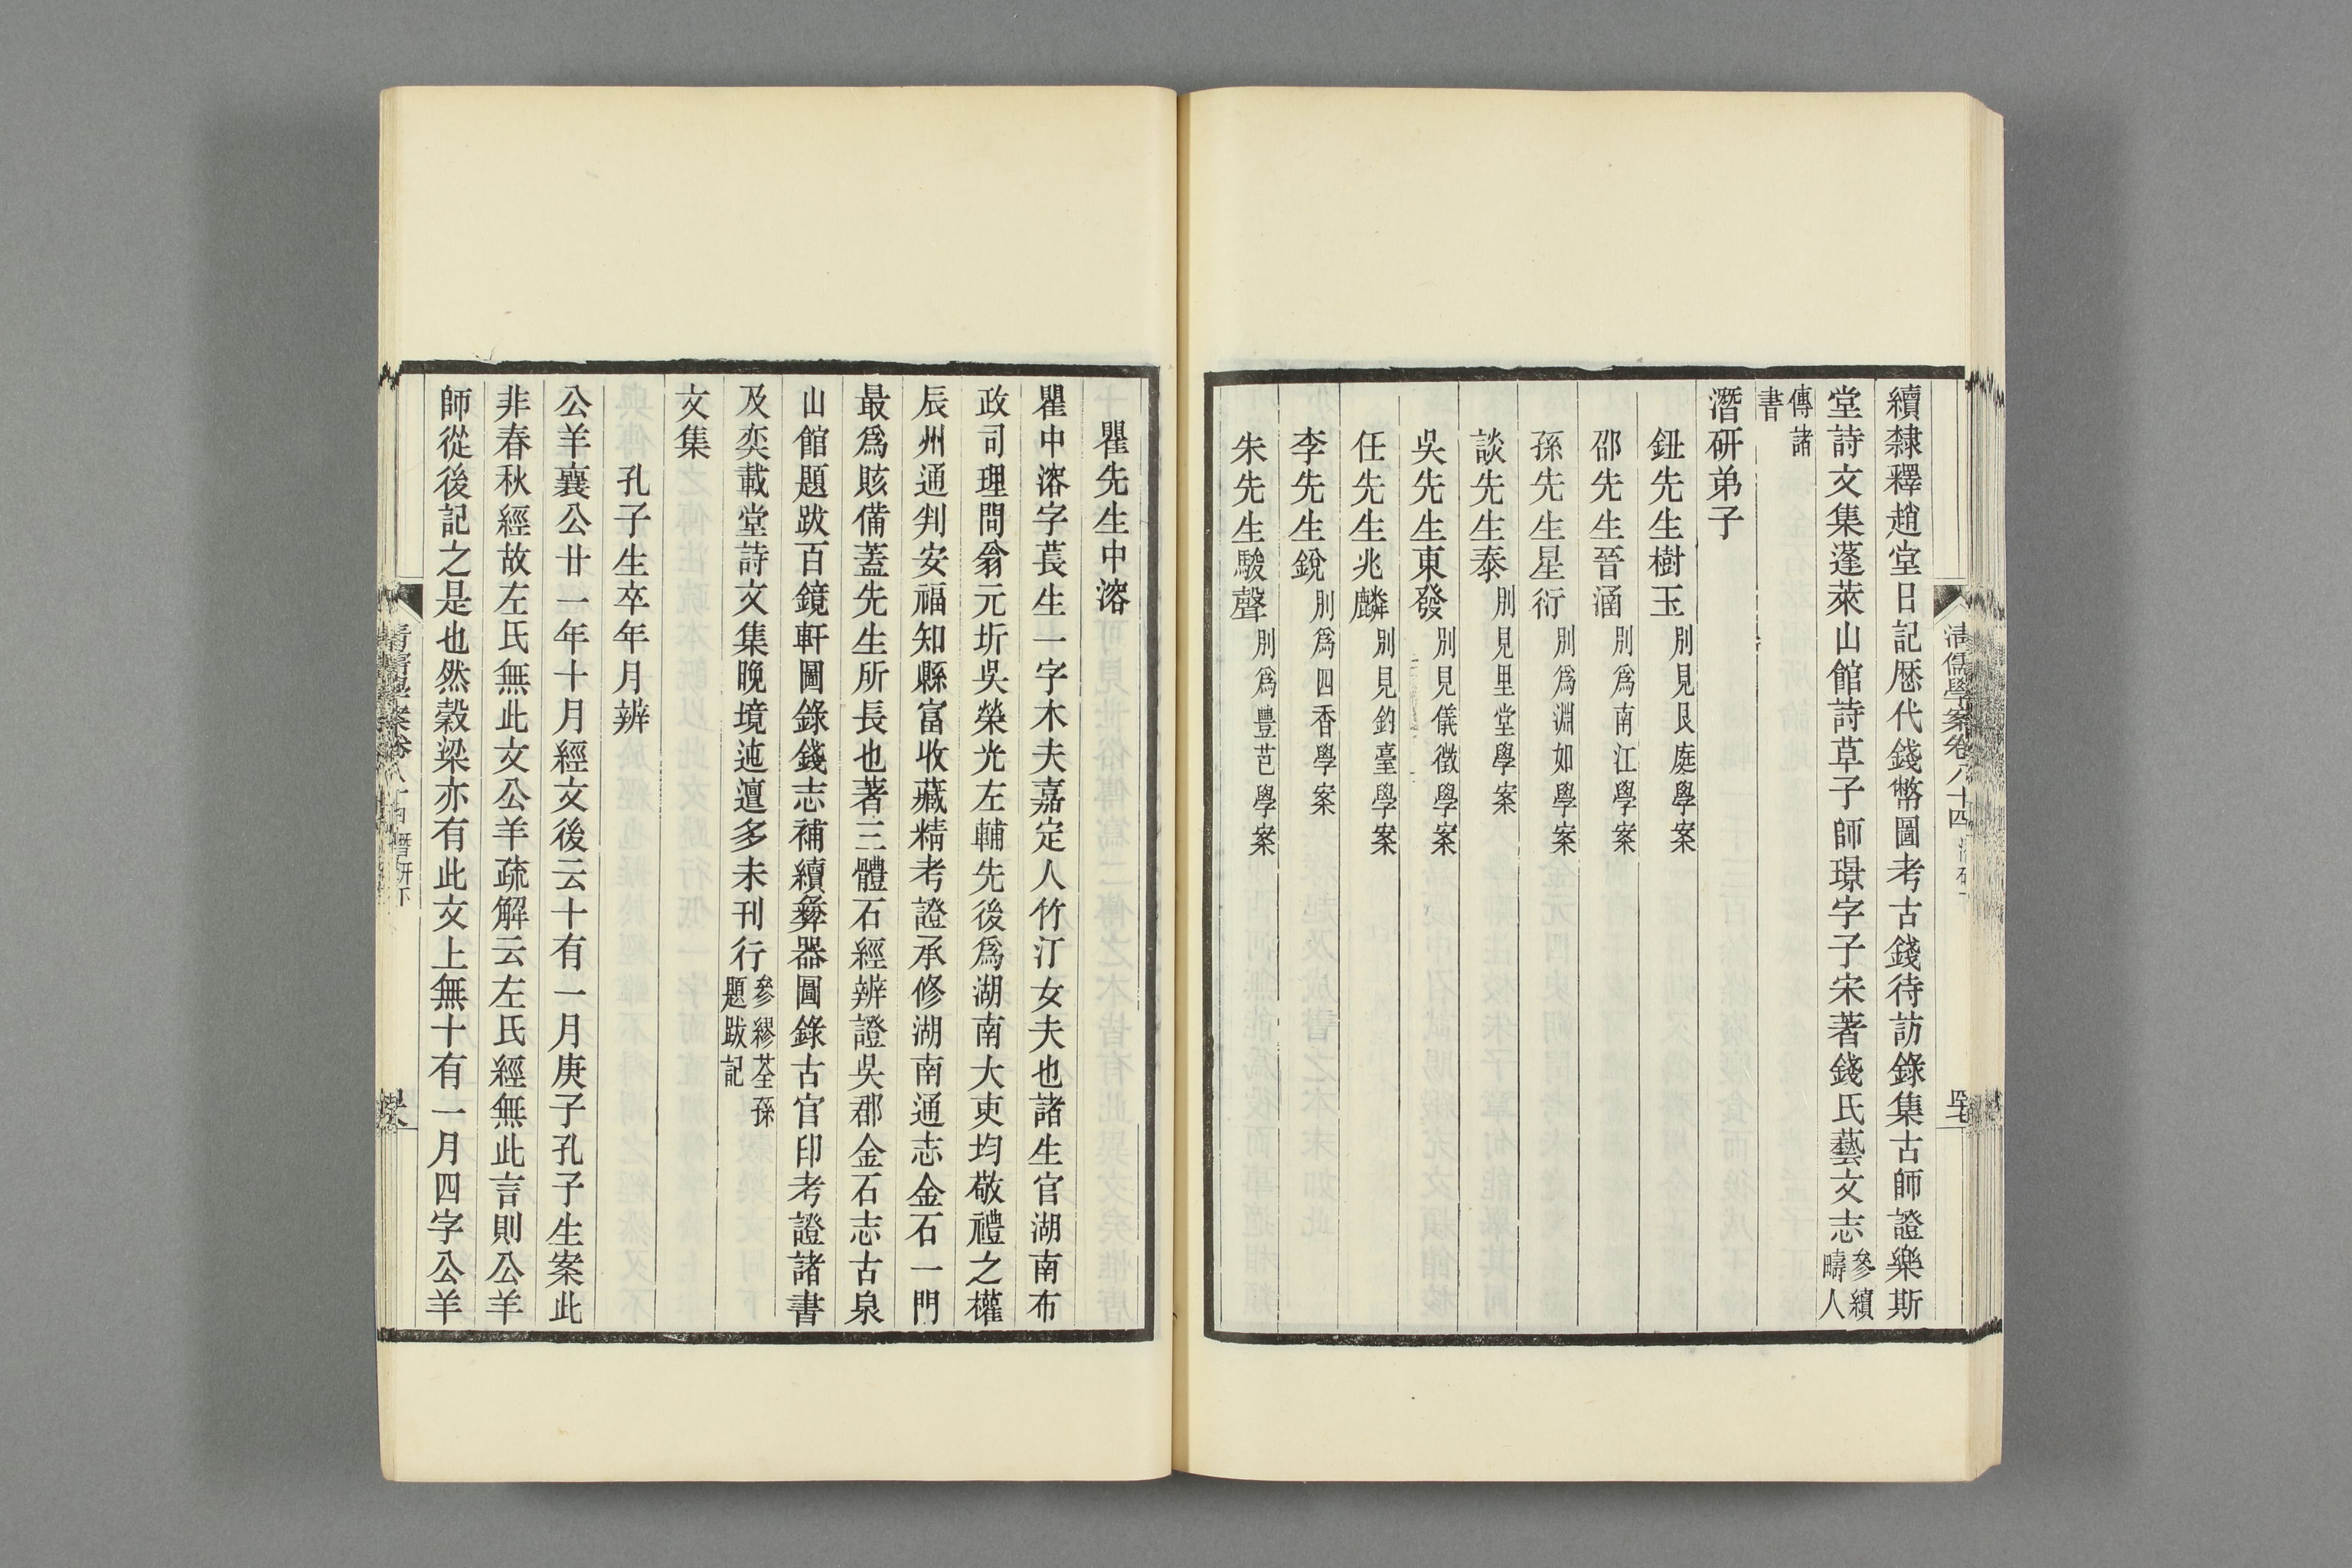 續隸釋趙堂日記歷代錢幣圖考古錢待訪錄集古師證樂斯
堂詩文集蓬萊山館詩草子師璟字子宋著錢氏藝文志參續疇人
傳諸書
潛研弟子
鈕先生樹玉別見艮庭學案
邵先生晉涵別為南江學案
孫先生星衍別為淵如學案
談先生泰別見里堂學案
吳先生東發別見儀徵學案
任先生兆麟別見釣臺學案
李先生銳別為四香學案
朱先生駿聲別為豐芑學案
清儒學案卷八十四
瞿先生中溶
瞿中溶字萇生一字木夫嘉定人竹汀女夫也諸生官湖南布
政司理問翁元圻吳榮光左輔先後為湖南大吏均敬禮之權
辰州通判安福知縣富收藏精考證承修湖南通志金石一門
最為賅備蓋先生所長也著三體石經辨證吳郡金石志古泉
山館題跋百鏡軒圖錄錢志補續彝器圖錄古官印考證諸書
及奕載堂詩文集晚境迍邅多未刊行參繆荃孫題跋記
文集
孔子生卒年月辨
公羊襄公廿一年十月經文後云十有一月庚子孔子生案此
非春秋經故左氏無此文公羊疏解云左氏經無此言則公羊
師從後記之是也然穀梁亦有此文上無十有一月四字公羊
清儒學案卷八十四 潛研下